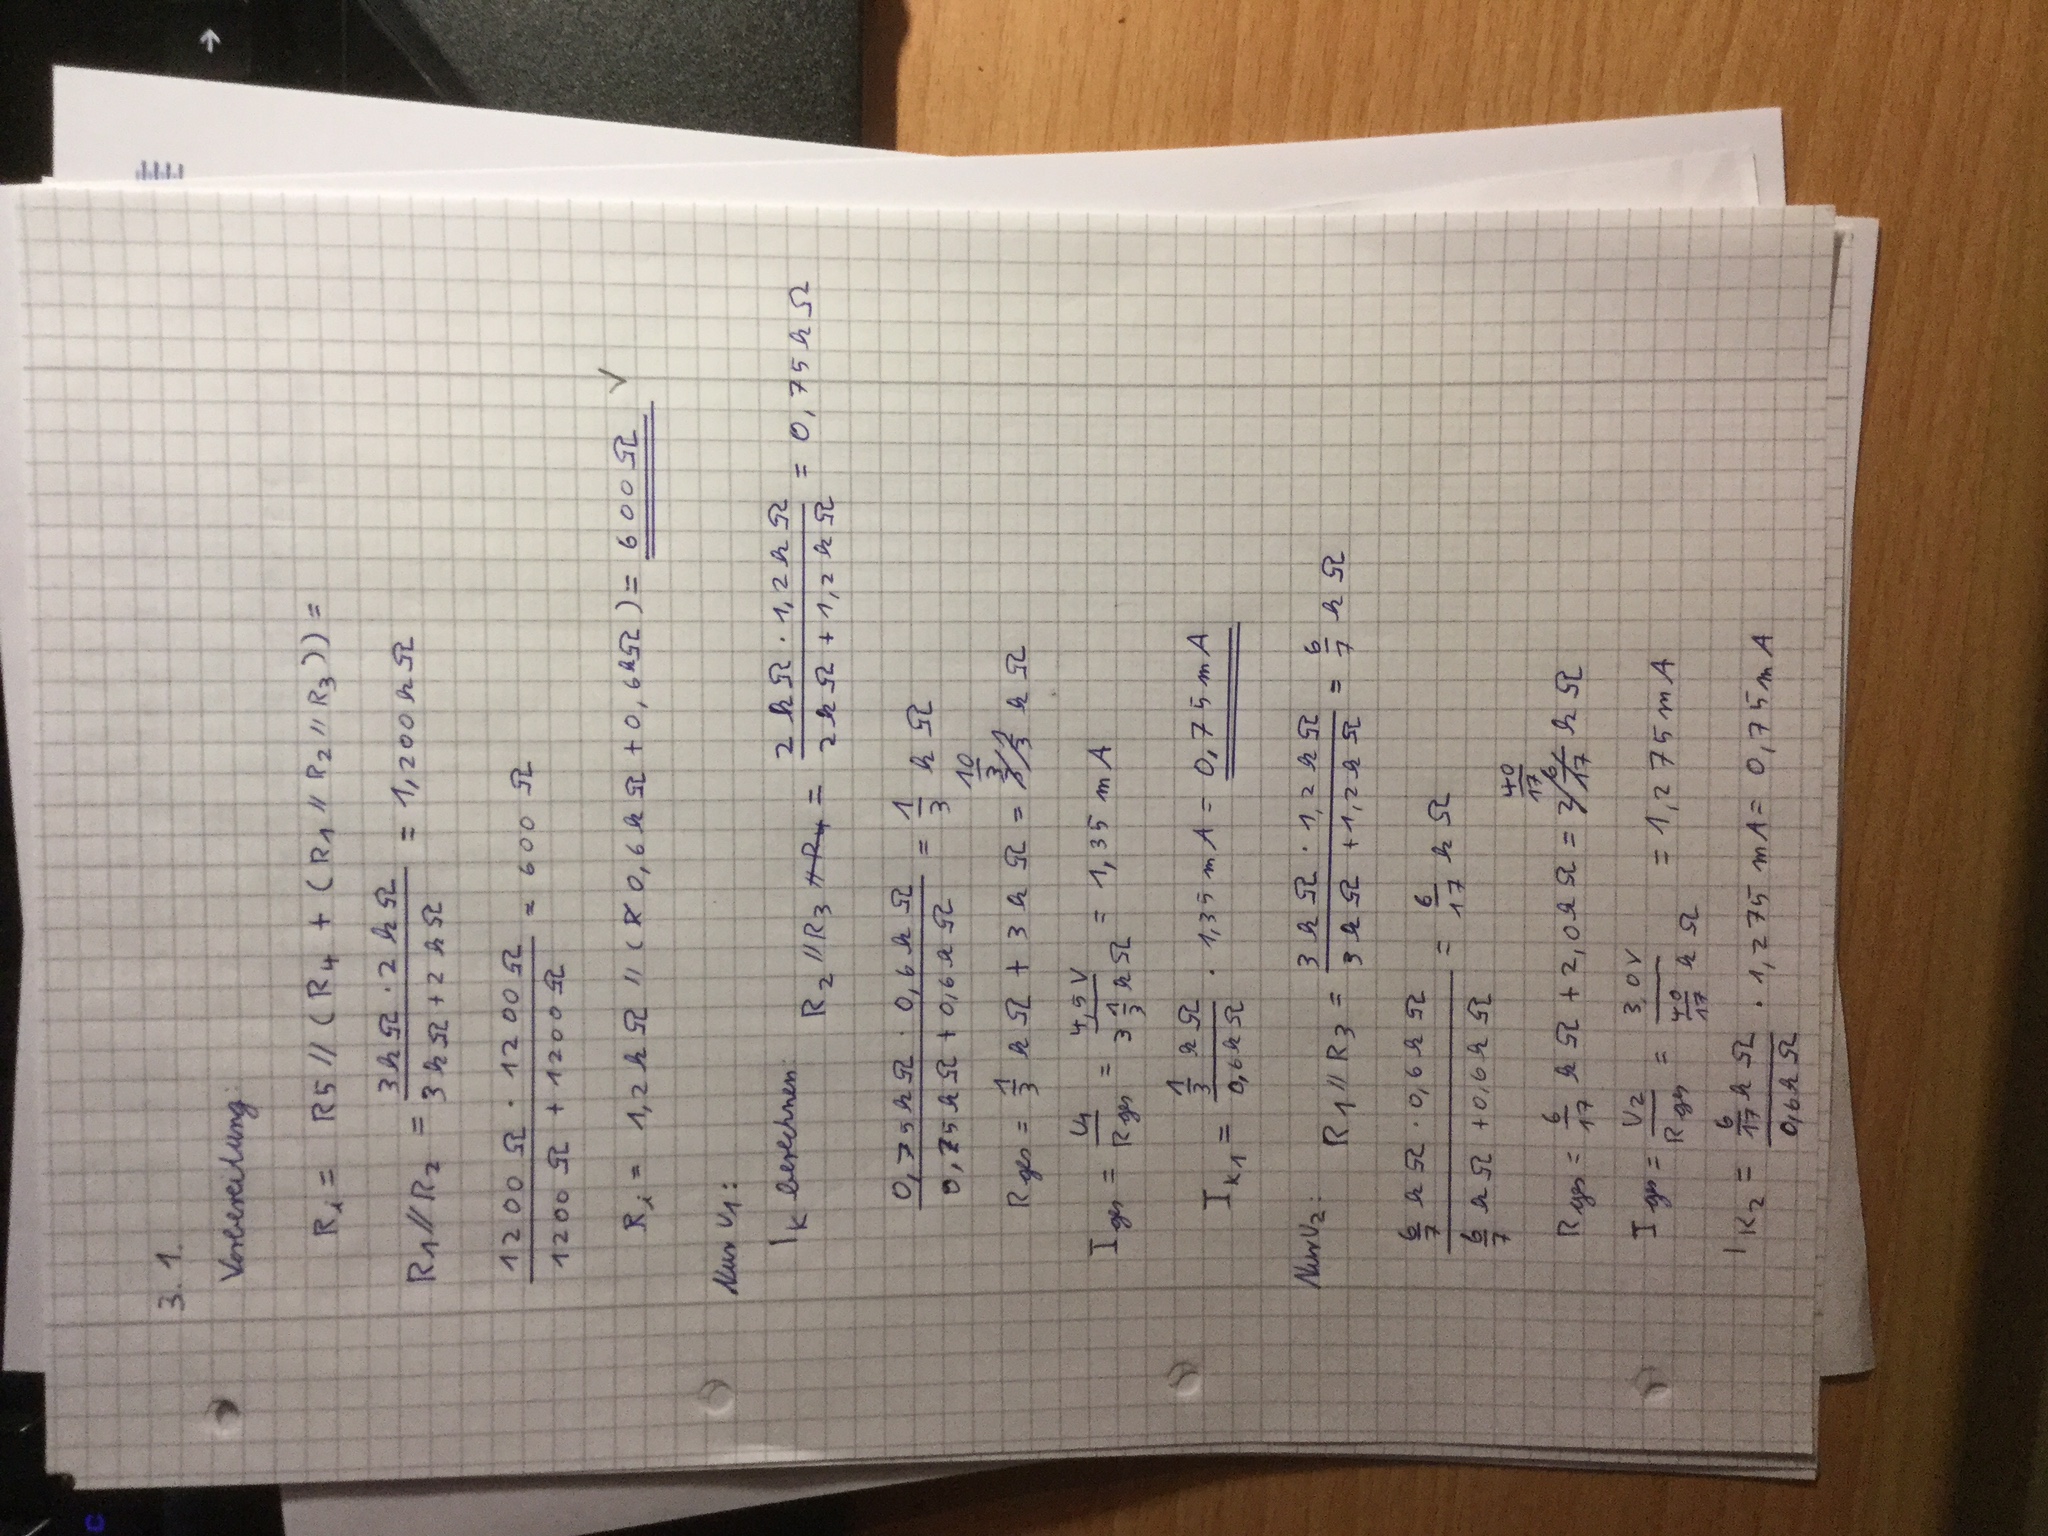 3.1.
Vorbereitung:
Ri = R5 // (R4 + (R1 // R2 // R3)) =
R1 // R2 = 3kΩ · 2kΩ / 3kΩ + 2kΩ = 1,200kΩ
1200Ω · 1200Ω / 1200Ω + 1200Ω = 600Ω
Ri = 1,2kΩ // (0,6kΩ + 0,6kΩ) = 600Ω √
Nur U1:
Ik berechnen:
R2 // R3 = 2kΩ · 1,2kΩ / 2kΩ + 1,2kΩ = 0,75kΩ
0,75kΩ · 0,6kΩ / 0,75kΩ + 0,6kΩ = 1/3 kΩ
Rges = 1/3 kΩ + 3kΩ = 10/3 kΩ
Iges = U1 / Rges = 4,5V / 3 1/3 kΩ = 1,35mA
Ik1 = 1/3 kΩ / 0,6kΩ · 1,35mA = 0,75mA
Nur U2:
R1 // R3 = 3kΩ · 1,2kΩ / 3kΩ + 1,2kΩ = 6/7 kΩ
6/7 kΩ · 0,6kΩ / 6/7 kΩ + 0,6kΩ = 6/17 kΩ
Rges = 6/17 kΩ + 2,0kΩ = 40/17 kΩ
Iges = U2 / Rges = 3,0V / 40/17 kΩ = 1,275mA
IK2 = 6/17 kΩ / 0,6kΩ · 1,275mA = 0,75mA